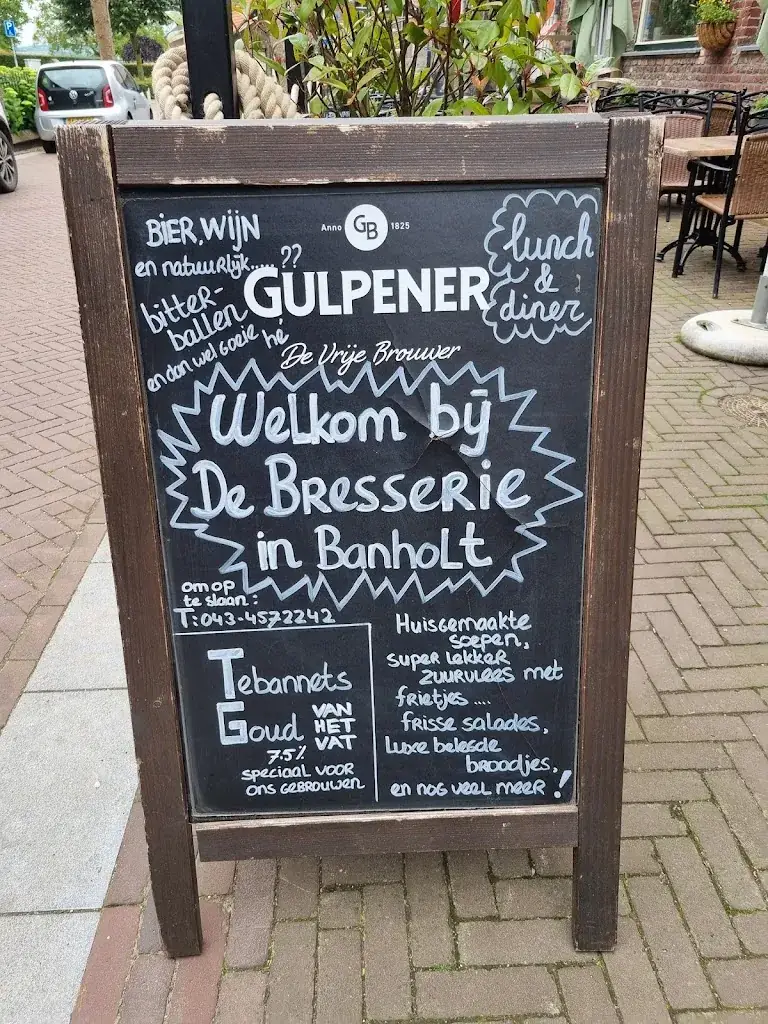 BIER, WIJN
en natuurlijk..... ??
bitter-
ballen
en dan wel goeie hè
Anno GB 1825
GULPENER
De Vrije Brouwer
lunch
&
diner
Welkom bij
De Bresserie
in Banholt
om op
te slaan:
T: 043-4572242
Tebannets
Goud VAN
HET
VAT
7.5%
speciaal voor
ons gebrouwen
Huisgemaakte
soepen,
super lekker
zuurvlees met
frietjes ....
frisse salades,
luxe belegde
broodjes,
en nog veel meer!